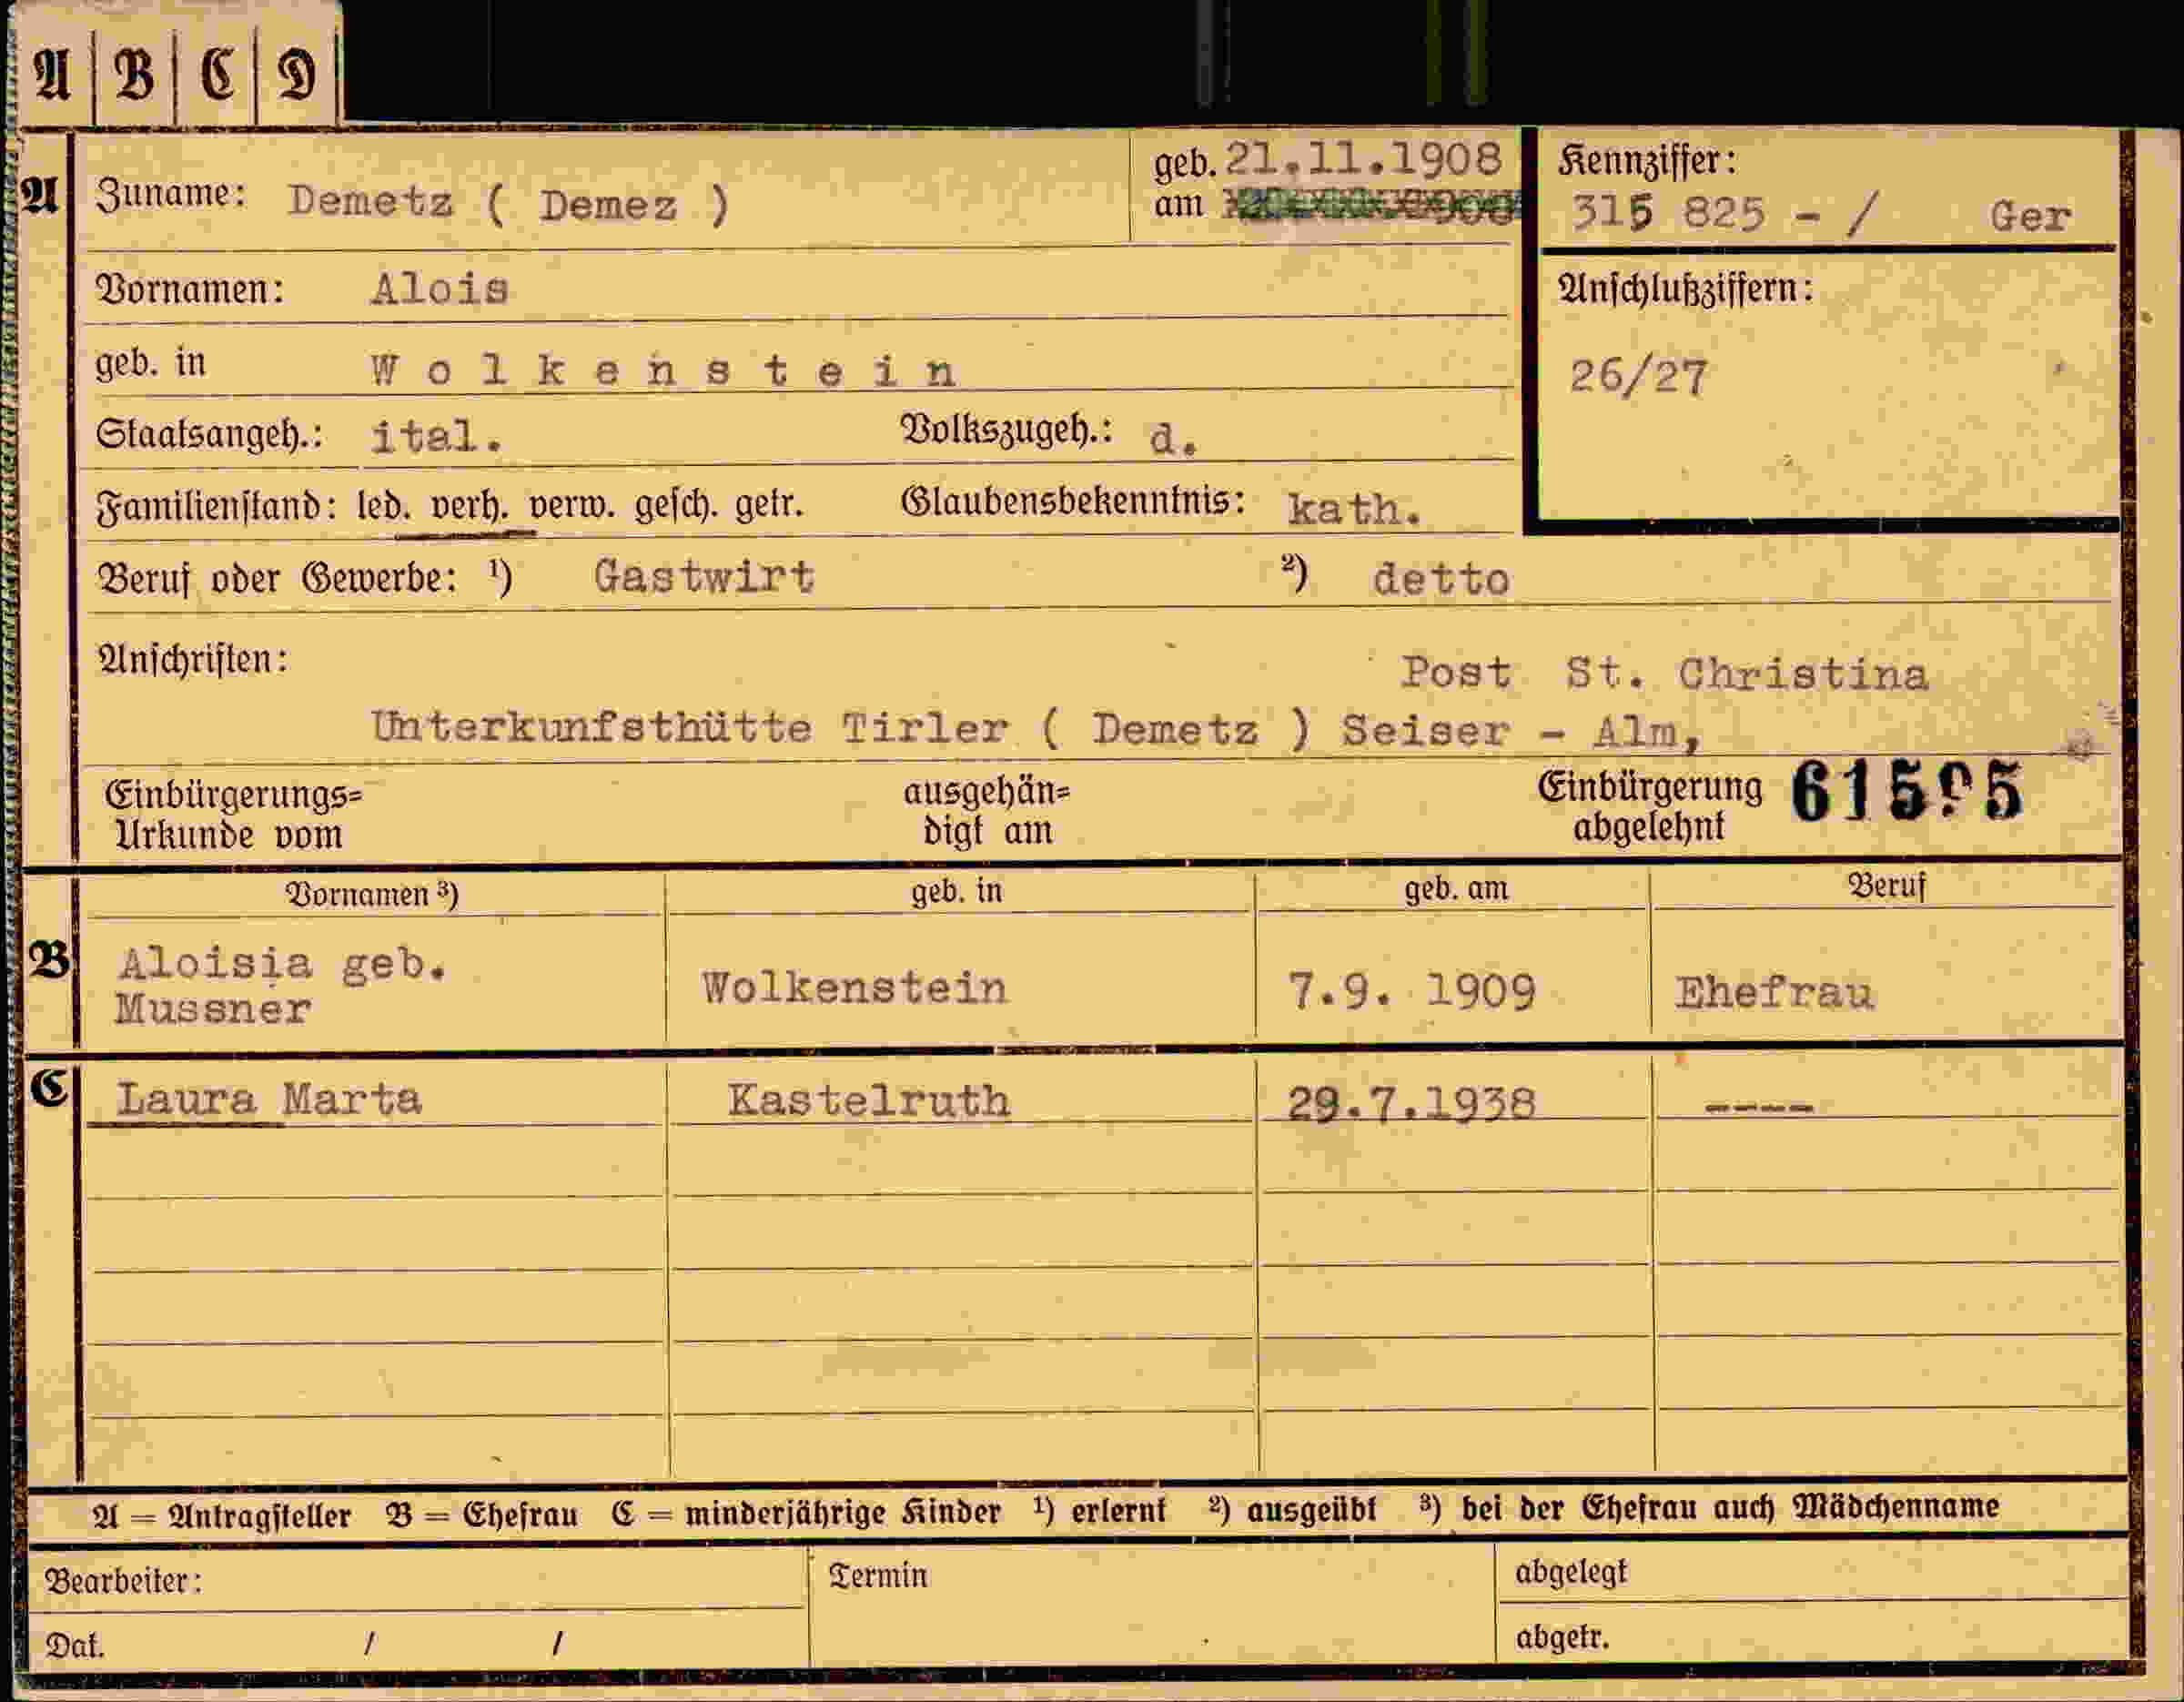 A B C D
A Zuname: Demetz ( Demez ) geb. am 21.11.1908 Kennziffer:
315 825 - / Ger
Vornamen: Alois Anschlußziffern:
geb. in Wolkenstein 26/27
Staatsangeh.: ital. Volkszugeh.: d.
Familienstand: led. verh. verw. gesch. getr. Glaubensbekenntnis: kath.
Beruf oder Gewerbe: ¹) Gastwirt ²) detto
Anschriften: Post St. Christina
Unterkunfsthütte Tirler ( Demetz ) Seiser - Alm,
Einbürgerungs= ausgehän= Einbürgerung
Urkunde vom digt am abgelehnt
Vornamen ³) geb. in geb. am Beruf
B Aloisia geb.
Mussner Wolkenstein 7.9. 1909 Ehefrau
C Laura Marta Kastelruth 29.7.1938 ----
A = Antragsteller B = Ehefrau C = minderjährige Kinder ¹) erlernt ²) ausgeübt ³) bei der Ehefrau auch Mädchenname
Bearbeiter: Termin abgelegt
Dat. / / abgetr.